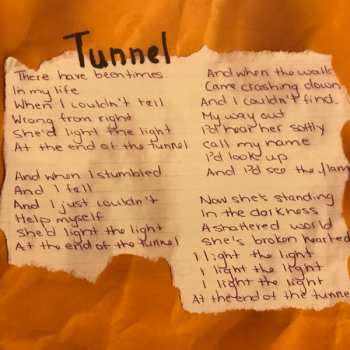 Tunnel
There have been times
In my life
When I couldn't tell
Wrong from right
She'd light the light
At the end of the tunnel
And when I stumbled
And I fell
And I just couldn't
Help myself
She'd light the light
At the end of the tunnel
And when the walls
Came crashing down
And I couldn't find
My way out
I'd hear her softly
Call my name
I'd look up
And I'd see the flam
Now she's standing
In the darkness
A shattered world
She's broken hearted
I light the light
I light the light
I light the light
At the end of the tunne